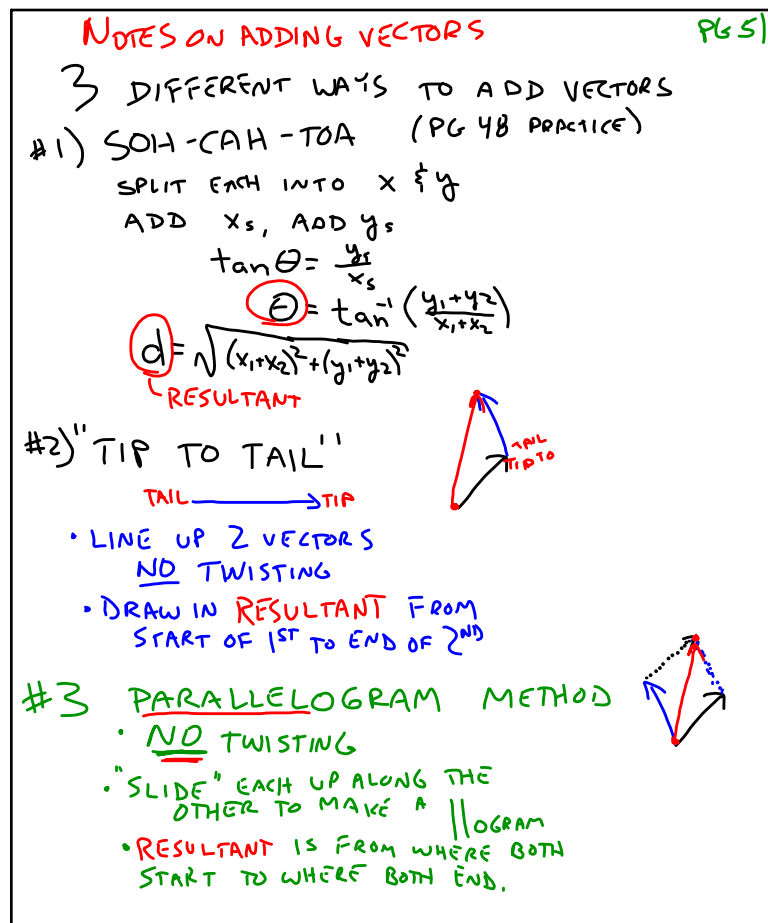 NOTES ON ADDING VECTORS PG 51
3 DIFFERENT WAYS TO ADD VECTORS
#1) SOH-CAH-TOA (PG 48 PRACTICE)
SPLIT EACH INTO X & y
ADD Xs, ADD ys
tan θ = ys/xs
θ = tan⁻¹ (y₁+y2/x₁+x₂)
d = √(x₁+x₂)²+(y₁+y₂)²
RESULTANT
#2) "TIP TO TAIL"
TAIL
TIP TO
TAIL TIP
• LINE UP 2 VECTORS
NO TWISTING
• DRAW IN RESULTANT FROM
START OF 1ST TO END OF 2ND
#3 PARALLELOGRAM METHOD
• NO TWISTING
• "SLIDE" EACH UP ALONG THE
OTHER TO MAKE A ||OGRAM
• RESULTANT IS FROM WHERE BOTH
START TO WHERE BOTH END.